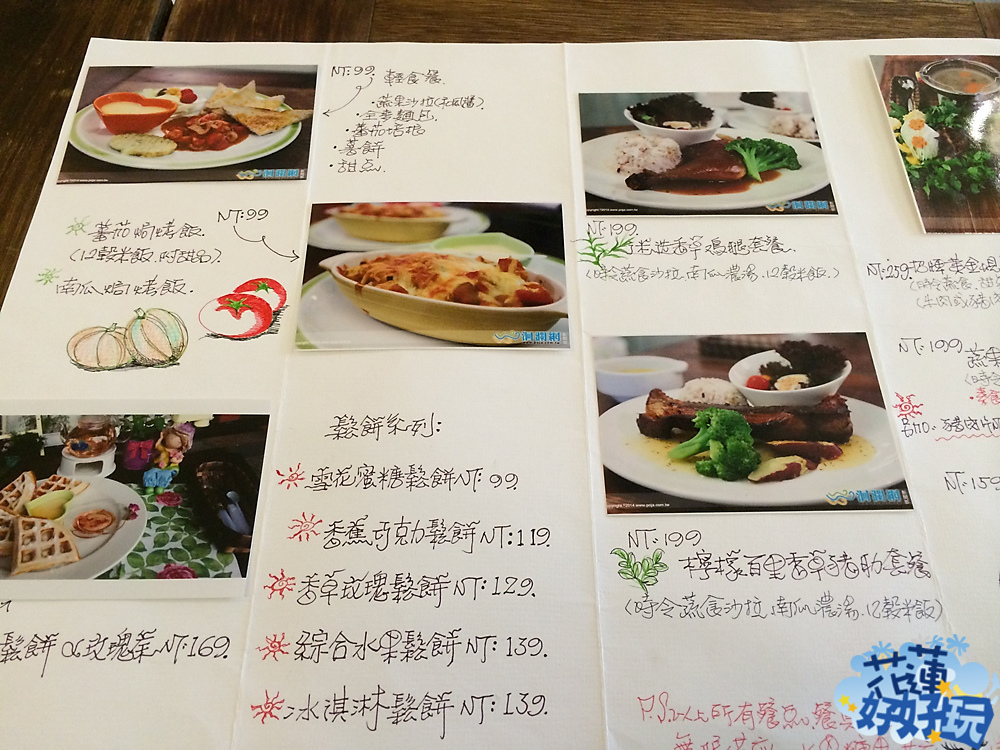 NT:99.
輕食餐.
·蔬果沙拉
·全麥麵包.
·蕃茄烤
·薯餅
·甜点.
NT:99
蕃茄焗烤飯.
(12穀米飯.附甜品).
南瓜焗烤飯.
鬆餅系列:
雪花蜜糖鬆餅NT:99.
香蕉巧克力鬆餅NT:119.
香草玫瑰鬆餅NT:129.
綜合水果鬆餅NT:139.
冰淇淋鬆餅NT:139.
鬆餅 玫瑰茶NT:169.
NT:199.
香草鷄腿套餐.
(時令蔬食沙拉,南瓜濃湯.12穀米飯.)
NT:199
檸檬百里香草豬肋套餐
(時令蔬食沙拉,南瓜濃湯.12穀米飯)
NT:259
(時令蔬食.甜
NT:199
蔬果
(時令
NT:159
P.S以上所有餐点
花蓮
好好玩